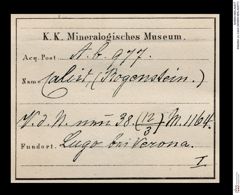 K. K. Mineralogisches Museum.
Acq. Post A. b. 977.
Name Calcit, (Rogenstein.)
V. d. N. 38. (12/3) M. 1164.
Fundort. Lugo bei Verona.
I.